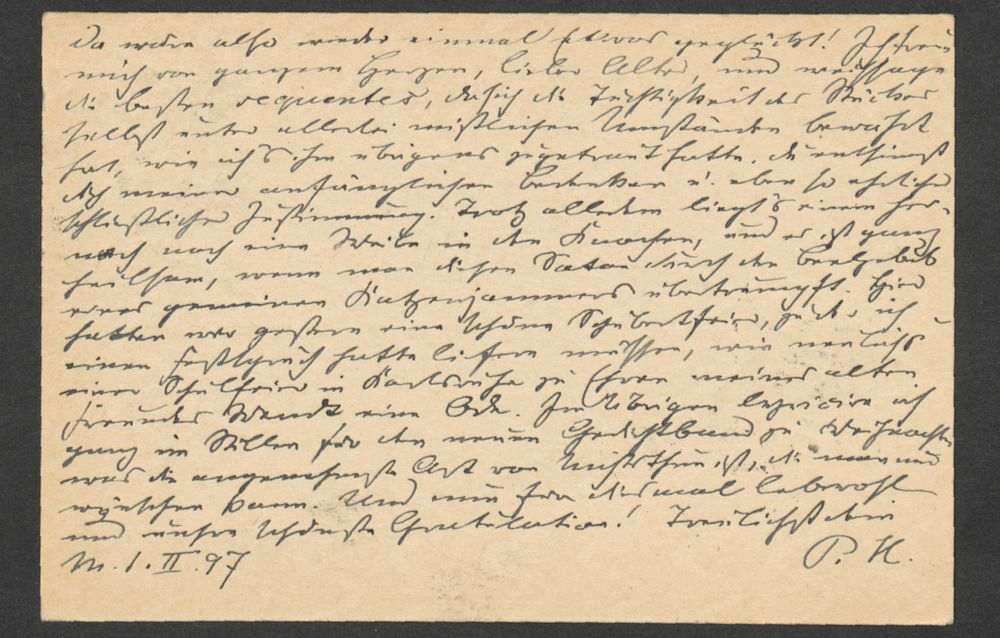 Da wäre also wieder einmal Etwas geglückt! Ich freue
mich von ganzem Herzen, lieber Alter, und weissage
die besten sequentes, da sich die Tüchtigkeit des Stückes
selbst unter allerlei mißlichen Umständen bewährt
hat, wie ich's ihm übrigens zugetraut hatte. Du entsinnst
Dich meiner anfänglichen Bedenken u. eben so ehrlichen
schließlichen Zustimmung. Trotz alledem liegt's einem her-
nach noch eine Weile in den Knochen, und es ist ganz
heilsam, wenn man diesen Satan durch den Beelzebub
eines gemeinen Katzenjammers übertrumpft. Hier
hatten wir gestern eine schöne Schubertfeier, zu der ich
einen Festspruch hatte liefern müssen, wie neulich
einer Schulfeier in Karlsruhe zu Ehren meines alten
Freundes Wendt eine Ode. Im Übrigen ich
ganz im Stillen für den neuen Gedichtband zu Weihnachten
was die angenehmste Art von Nichtsthun ist, die man
wünschen kann. Und nun für diesmal lebewohl
und unsre schönste Gratulation! Treulichst dein
M. 1. II. 97 P. H.